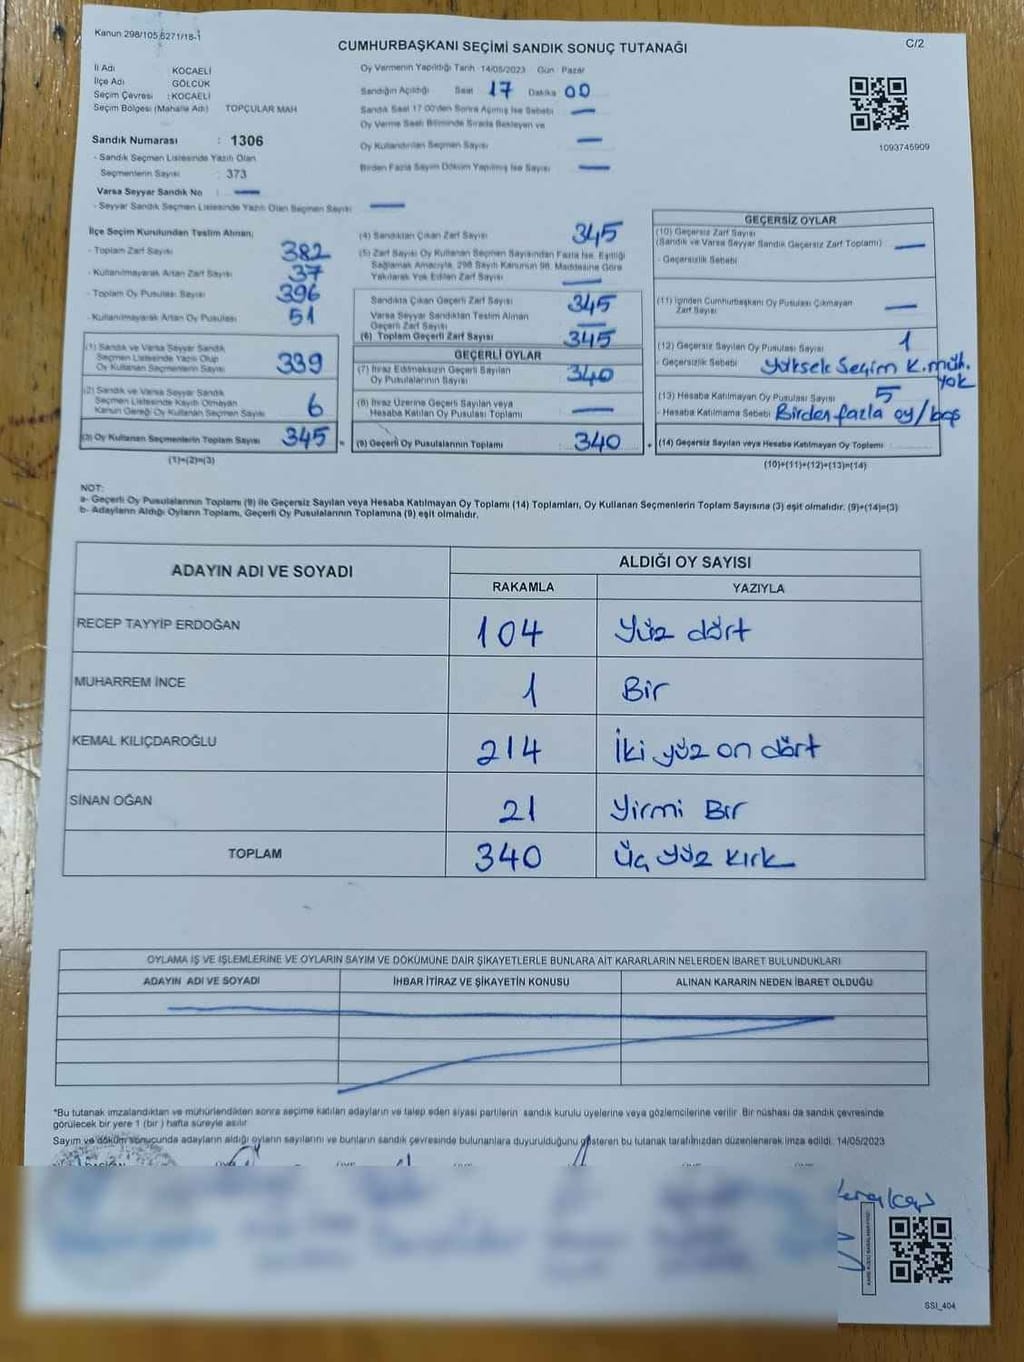 Kanun 298/105,6271/18-1
C/2
CUMHURBAŞKANI SEÇİMİ SANDIK SONUÇ TUTANAĞI
İl Adı : KOCAELİ
İlçe Adı : GÖLCÜK
Seçim Çevresi : KOCAELİ
Seçim Bölgesi (Mahalle Adı) TOPÇULAR MAH
Sandık Numarası : 1306
- Sandık Seçmen Listesinde Yazılı Olan
Seçmenlerin Sayısı : 373
Varsa Seyyar Sandık No : —
- Seyyar Sandık Seçmen Listesinde Yazılı Olan Seçmen Sayısı —
Oy Vermenin Yapıldığı Tarih 14/05/2023 Gün Pazar
Sandığın Açıldığı Saat 17 Dakika 00
Sandık Saat 17:00'den Sonra Açılmış İse Sebebi —
Oy Verme Saati Bitiminde Sırada Bekleyen ve
Oy Kullandırılan Seçmen Sayısı —
Birden Fazla Sayım Döküm Yapılmış İse Sayısı —
1093745909
İlçe Seçim Kurulundan Teslim Alınan;
- Toplam Zarf Sayısı 382
- Kullanılmayarak Artan Zarf Sayısı 37
- Toplam Oy Pusulası Sayısı 396
- Kullanılmayarak Artan Oy Pusulası 51
(1) Sandık ve Varsa Seyyar Sandık
Seçmen Listesinde Yazılı Olup
Oy Kullanan Seçmenlerin Sayısı 339
(2) Sandık ve Varsa Seyyar Sandık
Seçmen Listesinde Kayıtlı Olmayan
Kanun Gereği Oy Kullanan Seçmen Sayısı 6
(3) Oy Kullanan Seçmenlerin Toplam Sayısı 345 =
(1)+(2)=(3)
(4) Sandıktan Çıkan Zarf Sayısı 345
(5) Zarf Sayısı Oy Kullanan Seçmen Sayısından Fazla İse, Eşitliği
Sağlamak Amacıyla, 298 Sayılı Kanunun 98. Maddesine Göre
Yakılarak Yok Edilen Zarf Sayısı —
Sandıkta Çıkan Geçerli Zarf Sayısı 345
Varsa Seyyar Sandıktan Teslim Alınan
Geçerli Zarf Sayısı —
(6) Toplam Geçerli Zarf Sayısı 345
GEÇERLİ OYLAR
(7) İtiraz Edilmeksizin Geçerli Sayılan
Oy Pusulalarının Sayısı 340
(8) İtiraz Üzerine Geçerli Sayılan veya
Hesaba Katılan Oy Pusulası Toplamı —
(9) Geçerli Oy Pusulalarının Toplamı 340 +
GEÇERSİZ OYLAR
(10) Geçersiz Zarf Sayısı
(Sandık ve Varsa Seyyar Sandık Geçersiz Zarf Toplamı) —
- Geçersizlik Sebebi
(11) İçinden Cumhurbaşkanı Oy Pusulası Çıkmayan
Zarf Sayısı —
(12) Geçersiz Sayılan Oy Pusulası Sayısı 1
- Geçersizlik Sebebi Yüksek Seçim K. müh. yok
(13) Hesaba Katılmayan Oy Pusulası Sayısı 5
- Hesaba Katılmama Sebebi Birden fazla oy/boş
(14) Geçersiz Sayılan veya Hesaba Katılmayan Oy Toplamı
(10)+(11)+(12)+(13)=(14)
NOT:
a- Geçerli Oy Pusulalarının Toplamı (9) ile Geçersiz Sayılan veya Hesaba Katılmayan Oy Toplamı (14) Toplamları, Oy Kullanan Seçmenlerin Toplam Sayısına (3) eşit olmalıdır. (9)+(14)=(3)
b- Adayların Aldığı Oyların Toplamı, Geçerli Oy Pusulalarının Toplamına (9) eşit olmalıdır.
ADAYIN ADI VE SOYADI
ALDIĞI OY SAYISI
RAKAMLA YAZIYLA
RECEP TAYYİP ERDOĞAN 104 Yüz dört
MUHARREM İNCE 1 Bir
KEMAL KILIÇDAROĞLU 214 İki yüz on dört
SİNAN OĞAN 21 Yirmi Bir
TOPLAM 340 Üç yüz kırk
OYLAMA İŞ VE İŞLEMLERİNE VE OYLARIN SAYIM VE DÖKÜMÜNE DAİR ŞİKAYETLERLE BUNLARA AİT KARARLARIN NELERDEN İBARET BULUNDUKLARI
ADAYIN ADI VE SOYADI İHBAR İTİRAZ VE ŞİKAYETİN KONUSU ALINAN KARARIN NEDEN İBARET OLDUĞU
*Bu tutanak imzalandıktan ve mühürlendikten sonra seçime katılan adayların ve talep eden siyasi partilerin sandık kurulu üyelerine veya gözlemcilerine verilir. Bir nüshası da sandık çevresinde
görülecek bir yere 1 (bir) hafta süreyle asılır.
Sayım ve döküm sonucunda adayların aldığı oyların sayılarını ve bunların sandık çevresinde bulunanlara duyurulduğunu gösteren bu tutanak tarafımızdan düzenlenerek imza edildi. 14/05/2023
SSI_404